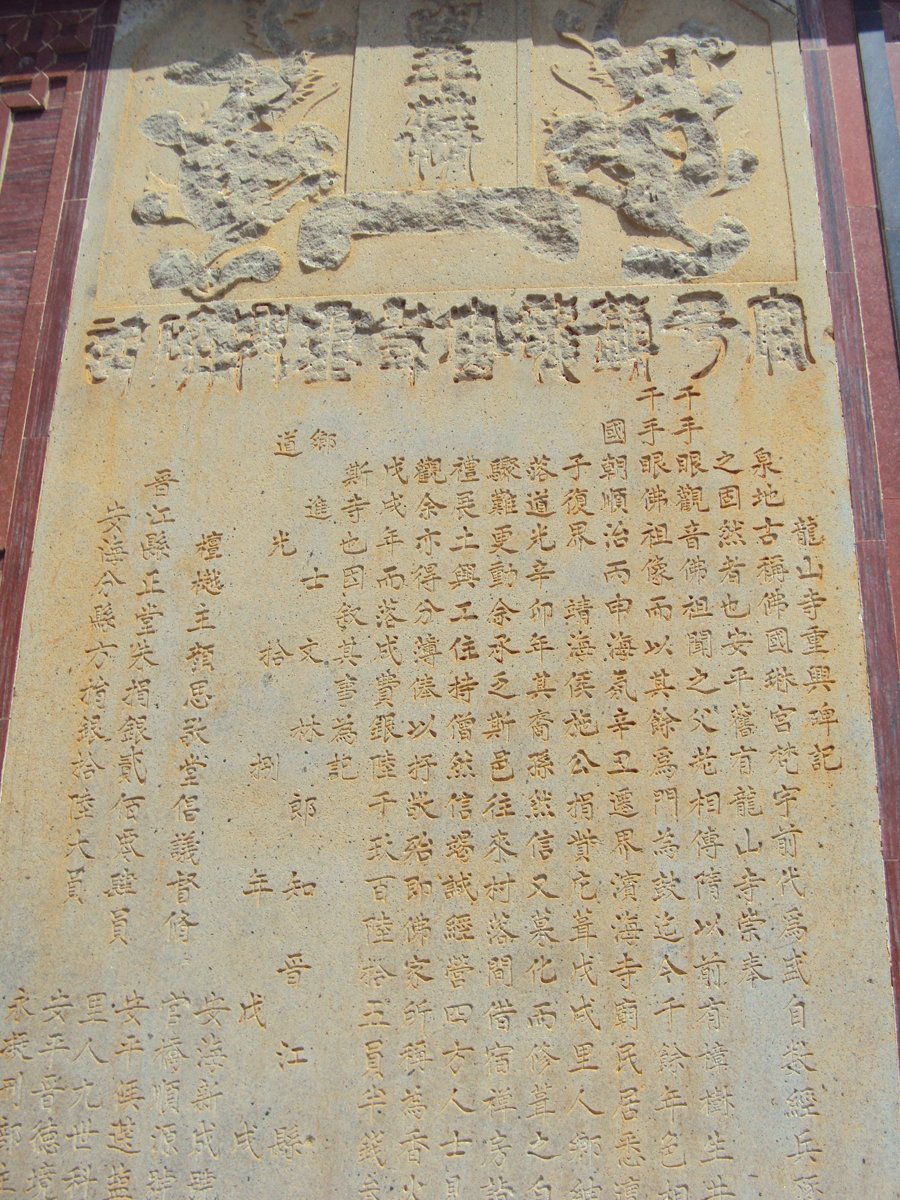 皇清
龍山寺重興碑記
泉地古稱佛國琳宮梵宇前代為盛自教經兵
之固然者也安平舊有龍山寺崇奉
千手眼觀音佛祖聞之父老相傳隋以前有樟樹生
千手眼佛祖像而以其餘為門為鼓迄今千餘年色相
國朝順治丙申海氛辛丑遷界濱海寺廟民居悉
子復界 靖海侯施公捐貲庀葺戊戌里人鄉紳
落道光辛卯年其裔孫然信又募化而修葺之
驟難更動余承乏斯邑往來村落間借宿禪房
禮艮土興工住持僧然信竭誠經營四方人士
觀余亦得分薄俸以抒敬殆即佛家所稱為香火
戊戌年而落成費銀陸千玖百陸拾五員半錢
斯寺也因敘其事為記
鄉進士文林郎知晉江縣
道光拾捌年戊戌
檀樾主顏思敬堂倡議督脩
晉江縣正堂朱捐銀貳佰零肆員
安海分縣方捐銀拾陸大員
安海新成號
官橋順源號
安平候選
里人尤世科
安平晉德境
永